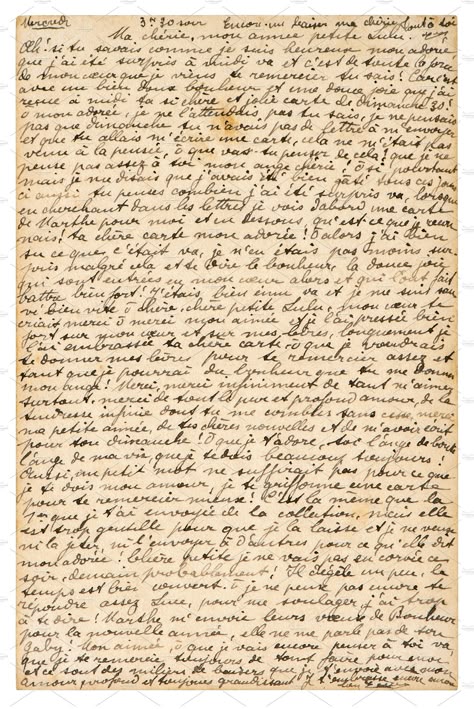 Mercredi 3h30 soir Encore un baiser ma chérie tout à toi
Ma chérie, mon aimée petite Lulu.
Oh! si tu savais comme je suis heureux mon adorée
que j'ai été surpris à midi va et c'est de toute la force
de mon cœur que je viens te remercier tu sais! Car c'est
avec un bien doux bonheur et une douce joie que j'ai
reçue à midi ta si chère et jolie carte de dimanche 30!
ô mon adorée, je ne l'attendais pas tu sais, je ne pensais
pas que dimanche tu n'avais pas de lettre à m'envoyer
et que tu allais m'écrire une carte, cela ne m'était pas
venu à la pensée, ô que vas-tu penser de cela! que je ne
pense pas assez à toi mon ange chérie! Ô si pourtant
mais je me disais que j'avais été bien gâté tous ces jours
ci aussi tu penses combien j'ai été surpris va, lorsque
en cherchant dans les lettres je vois d'abord une carte
de Marthe pour moi et en dessous, qu'est ce que je recon
nais! ta chère carte mon adorée! Ô alors j'ai bien
su ce que c'était va, je n'en étais pas moins sur
pris malgré cela et te dire le bonheur, la douce joie
qui sont entrées en mon cœur alors et que l'ont fait
battre bien fort! J'étais bien ému va et je me suis sau
vé bien vite ô chère, chère petite Lulu, mon cœur te
criait merci ô merci mon aimée et je l'ai pressée bien
fort sur mon cœur et sur mes lèvres longuement je
l'ai embrassée ta chère carte ô que je voudrais
te donner mes lèvres pour te remercier assez et
tant que je pourrai du bonheur que tu me donnes
mon ange! Merci, merci infiniment de tant m'aimer
surtout, merci de tout le pur et profond amour, de la
tendresse infinie dont tu me combles sans cesse, merci
ma petite aimée, de tes chères nouvelles et de m'avoir écrit
pour ton dimanche! Ô que je t'adore, toi l'ange de bonté
l'ange de ma vie, que je te dois beaucoup toujours!
Aussi, un petit mot ne suffirait pas pour ce que
je te dois mon amour, je te griffonne une carte
pour te remercier mieux! C'est la même que la
1re que je t'ai envoyée de la collection, mais elle
est trop gentille pour que je la laisse et je ne veux
ni la jeter, ni l'envoyer à d'autres pour ce qu'elle dit
mon adorée! Chère petite je ne vais pas en corvée ce
soir, demain probablement! Il dégèle un peu, le
temps est bien couvert. Ô je ne pense pas encore te
répondre assez Lulu, pour me soulager, j'ai trop
à te dire! Marthe m'envoie leurs vœux de Bonheur
pour la nouvelle année, elle ne me parle pas de ton
Gaby! Mon aimée, ô que je vais encore penser à toi va,
que je te remercie toujours de tant faire pour moi
et ce sont des milliers de baisers que je t'envoie avec mon
amour, profond et toujours grandissant. Je t'embrasse encore amour